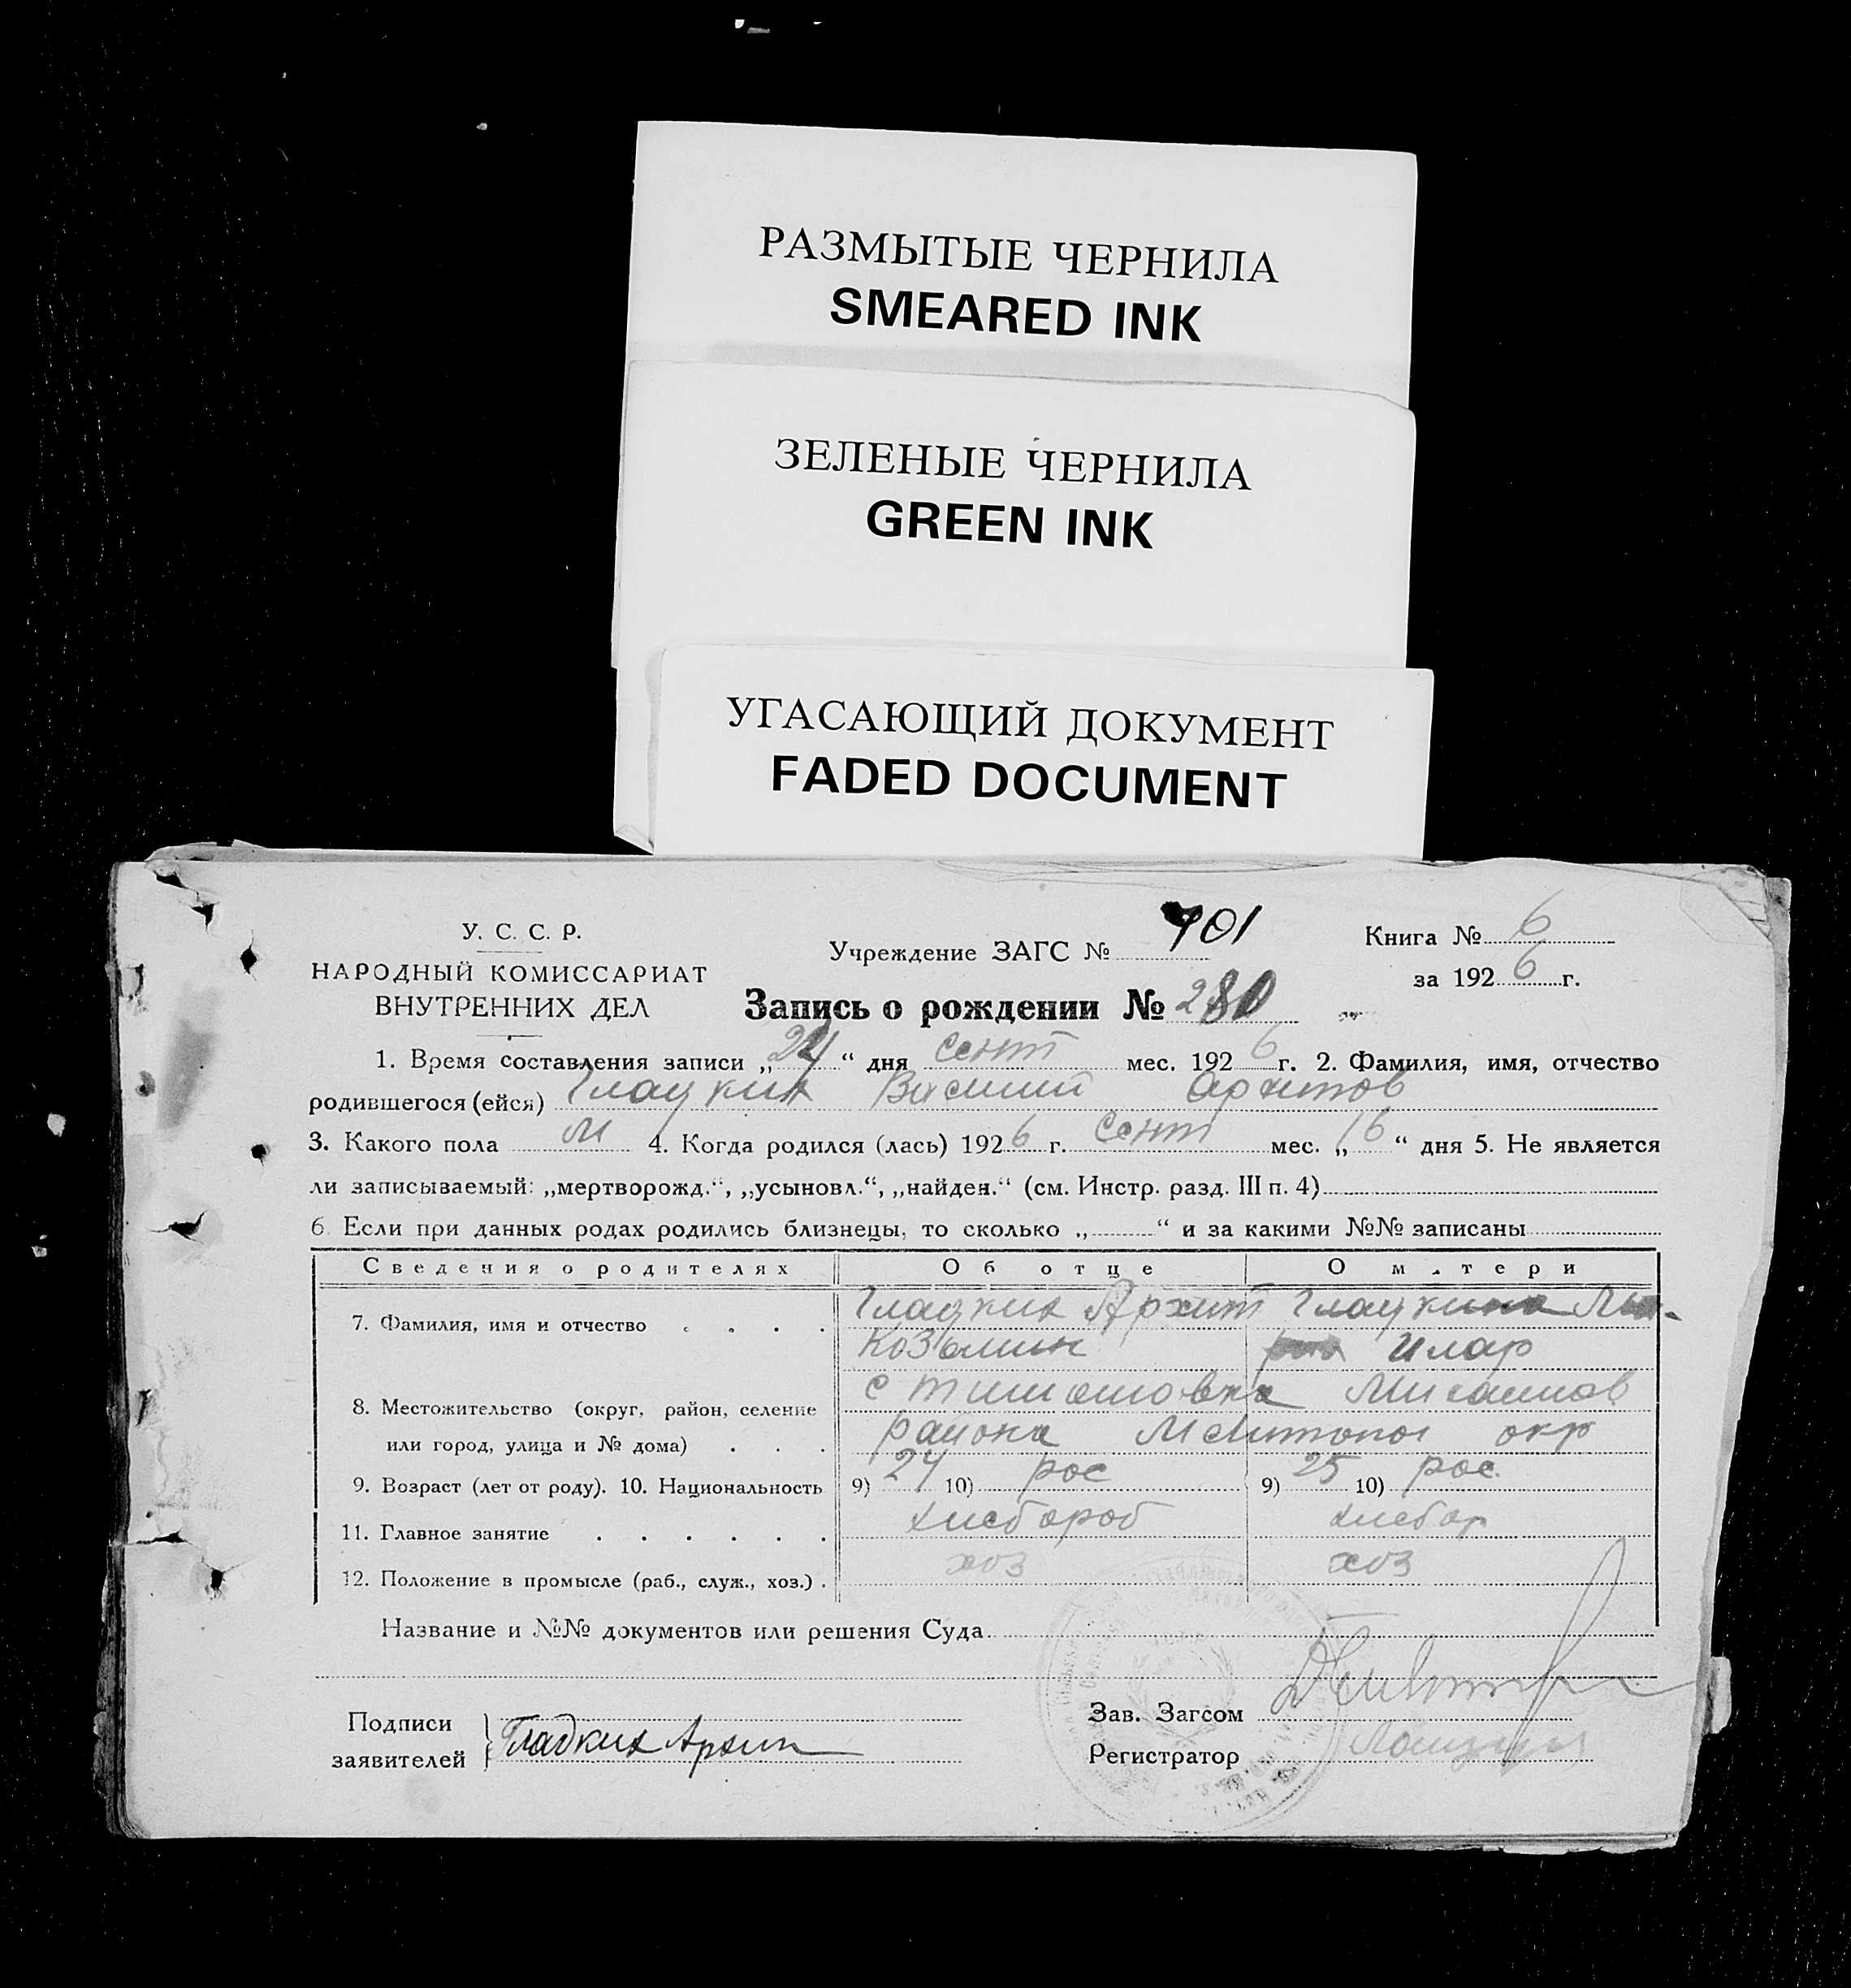 РАЗМЫТЫЕ ЧЕРНИЛА
SMEARED INK
ЗЕЛЕНЫЕ ЧЕРНИЛА
GREEN INK
УГАСАЮЩИЙ ДОКУМЕНТ
FADED DOCUMENT
У. С. С. Р.
НАРОДНЫЙ КОМИССАРИАТ
ВНУТРЕННИХ ДЕЛ
Учреждение ЗАГС № 701
Книга № 6
за 1926 г.
Запись о рождении № 280
1. Время составления записи „24“ дня сент мес. 1926 г. 2. Фамилия, имя, отчество
родившегося (ейся) Гладких Василий Архипов
3. Какого пола м 4. Когда родился (лась) 1926 г. сент мес. „16“ дня 5. Не является
ли записываемый: „мертворожд.“, „усыновл.“, „найден.“ (см. Инстр. разд. III п. 4)
6. Если при данных родах родились близнецы, то сколько „ “ и за какими №№ записаны
Сведения о родителях Об отце О матери
7. Фамилия, имя и отчество Гладких Архип Гладкина
Козьмин Илар
с Тимошовка Михайлов
8. Местожительство (округ, район, селение
или город, улица и № дома) района Мелитопол окр
9. Возраст (лет от роду). 10. Национальность 9) 24 10) рос 9) 25 10) рос.
11. Главное занятие хлебороб хлебор
12. Положение в промысле (раб., служ., хоз.) хоз хоз
Название и №№ документов или решения Суда
Подписи
заявителей Гладких Архип
Зав. Загсом
Регистратор